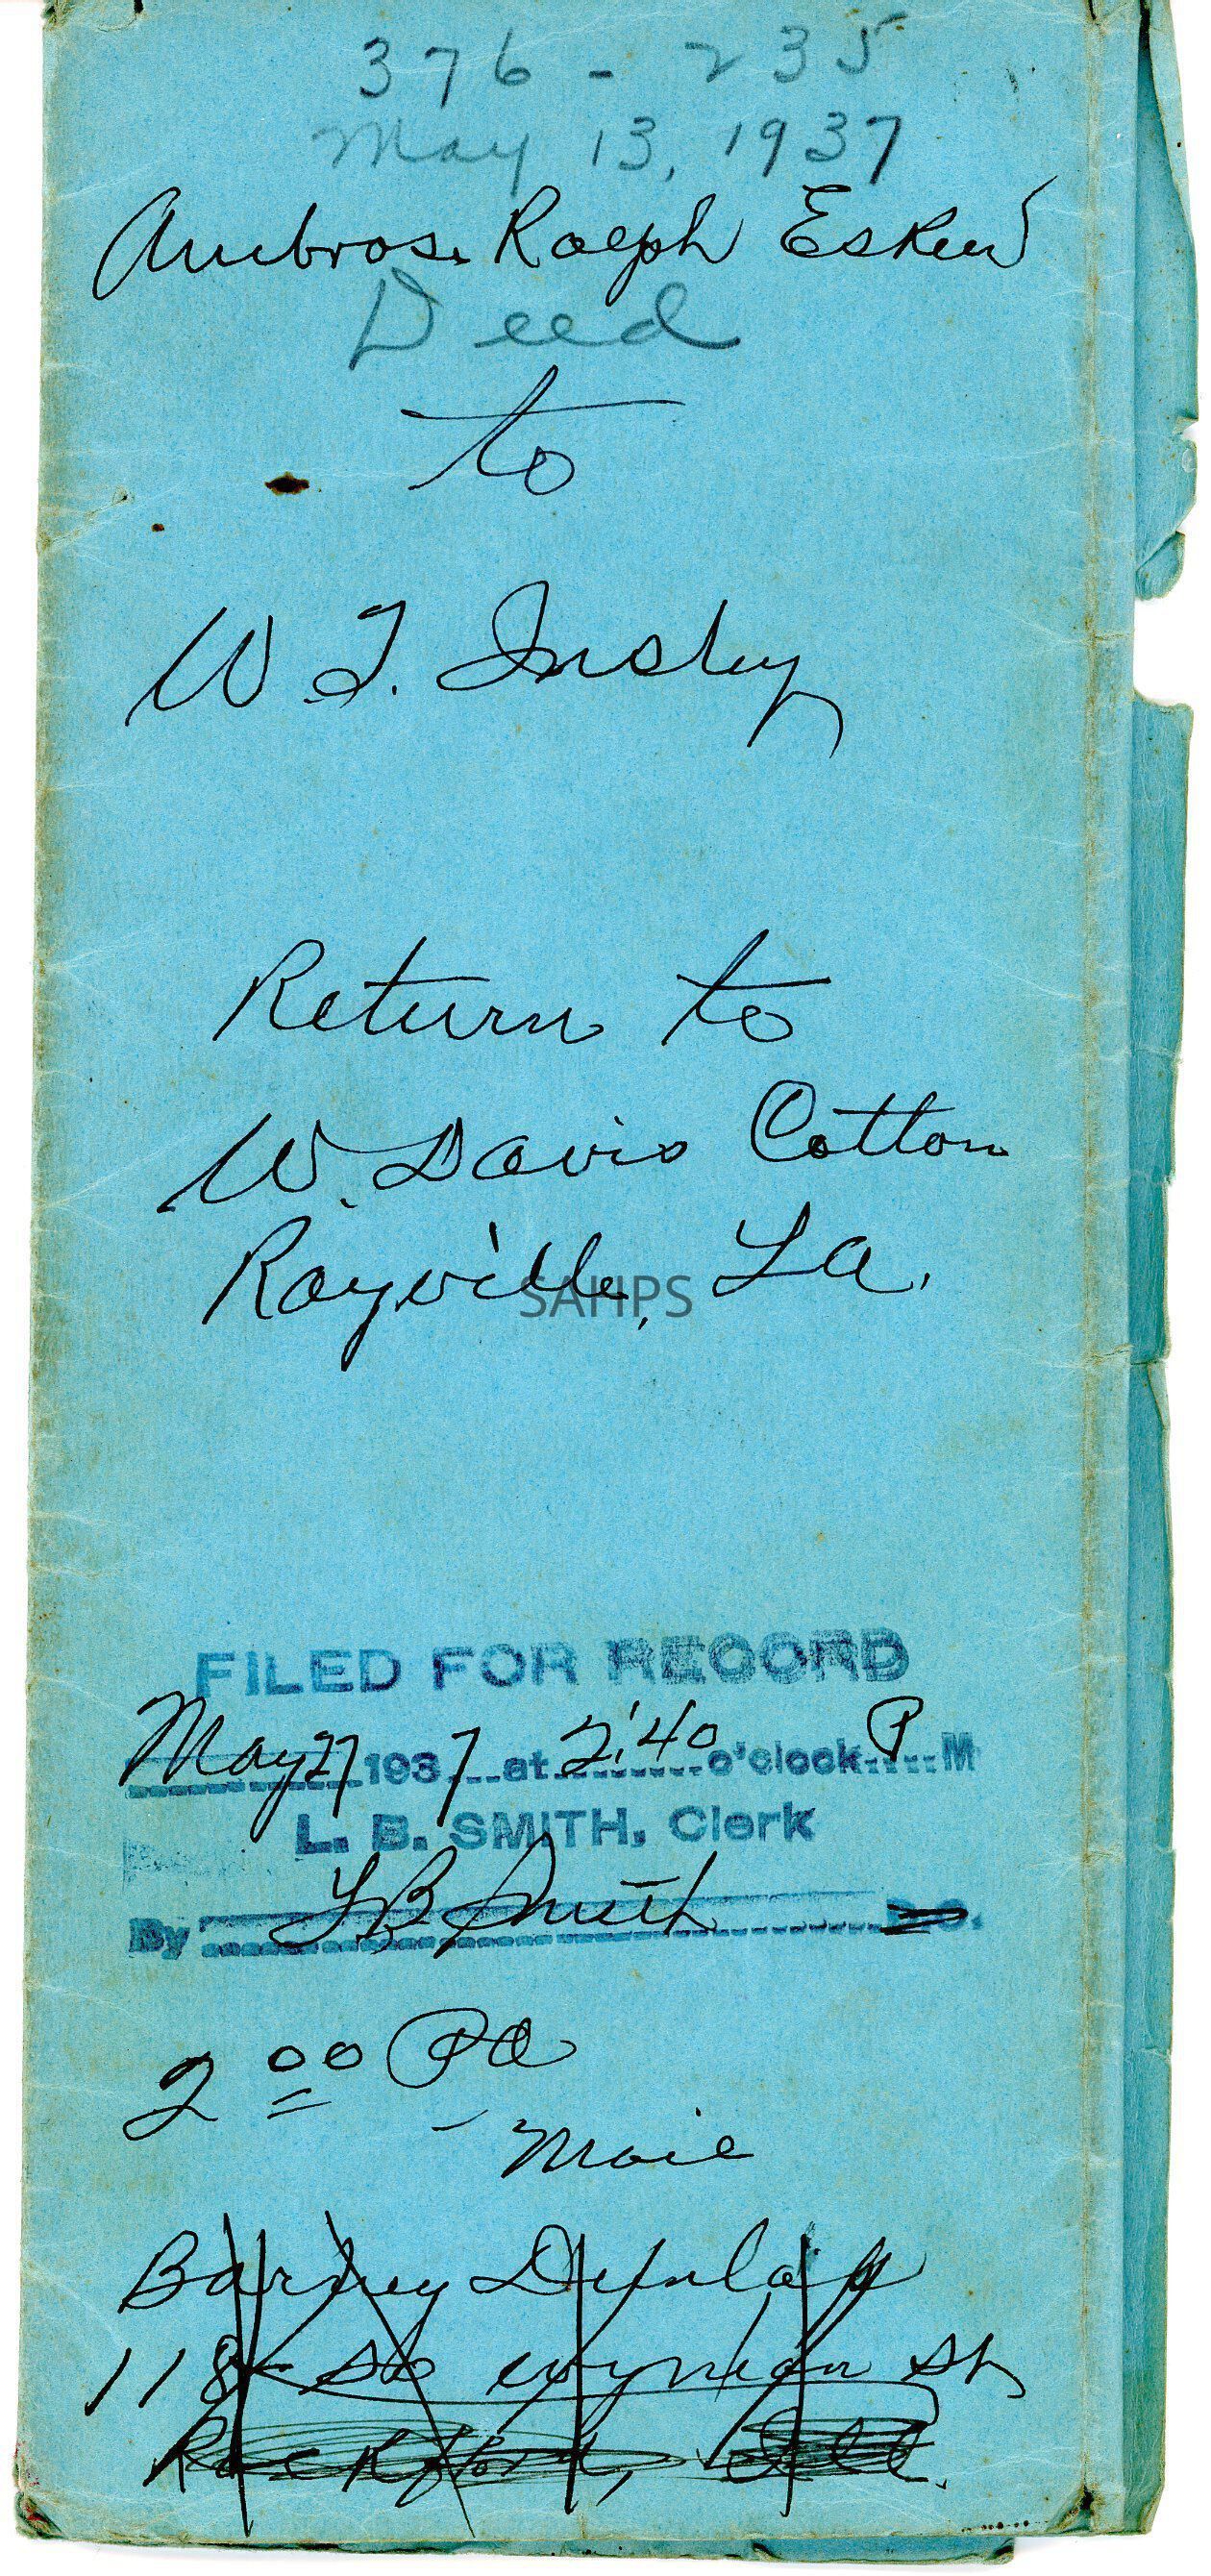 376 - 235
May 13, 1937
Ambrose Ralph Eskew
Deed
to
W. T. Insley
Return to
W. Davis Cotton
Rayville, La.
SAHPS
FILED FOR RECORD
May 27 1937 at 2:40 o'clock P M
L. B. SMITH, Clerk
By L B Smith D.C.
2 00 Pd
- Mail
Barney Dunlap
118 So Wyman St
Rockford, Ill.